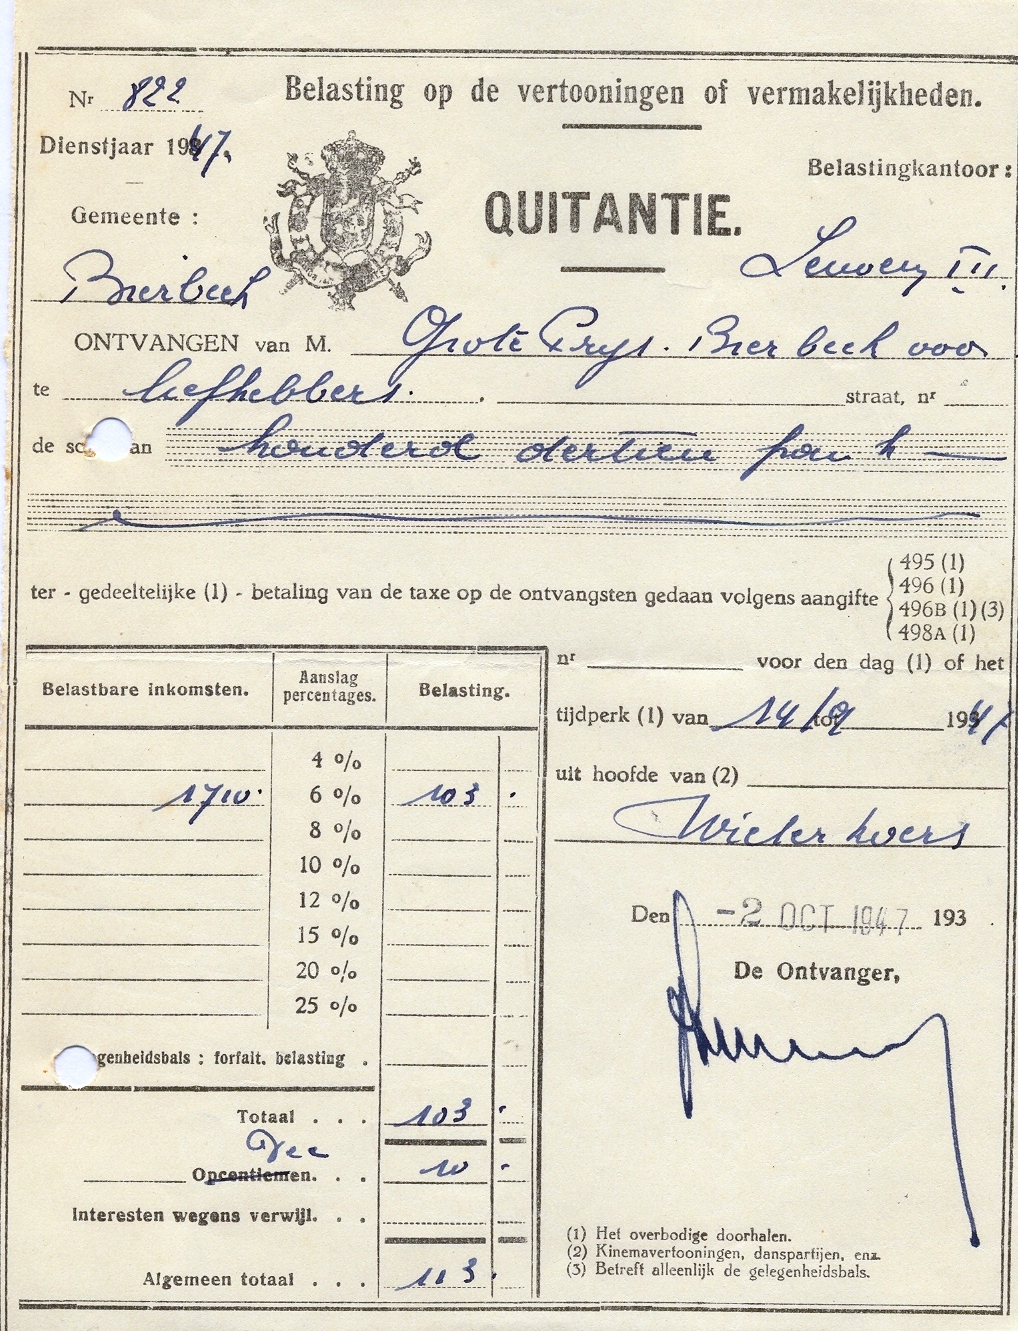 Nr 822
Belasting op de vertooningen of vermakelijkheden.
Dienstjaar 1947.
Belastingkantoor :
Gemeente :
QUITANTIE.
Leuven III.
Bierbeek
ONTVANGEN van M. Grote Prys. Bierbeek voor
te liefhebbers. straat, nr
de so an honderd dertien frank
ter - gedeeltelijke (1) - betaling van de taxe op de ontvangsten gedaan volgens aangifte
495 (1)
496 (1)
496B (1) (3)
498A (1)
nr voor den dag (1) of het
tijdperk (1) van 14/9 tot 1947
uit hoofde van (2)
Wielerkoers
Den -2 OCT 1947 193 .
De Ontvanger,
Belastbare inkomsten. Aanslag percentages. Belasting.
4 %
1710. 6 % 103 .
8 %
10 %
12 %
15 %
20 %
25 %
genheidsbals : forfalt. belasting .
Totaal . . . 103 .
Opcentiemen. . . 10 .
Interesten wegens verwijl. . .
Algemeen totaal . . . 113 .
(1) Het overbodige doorhalen.
(2) Kinemavertooningen, danspartijen, enz.
(3) Betreft alleenlijk de gelegenheidsbals.